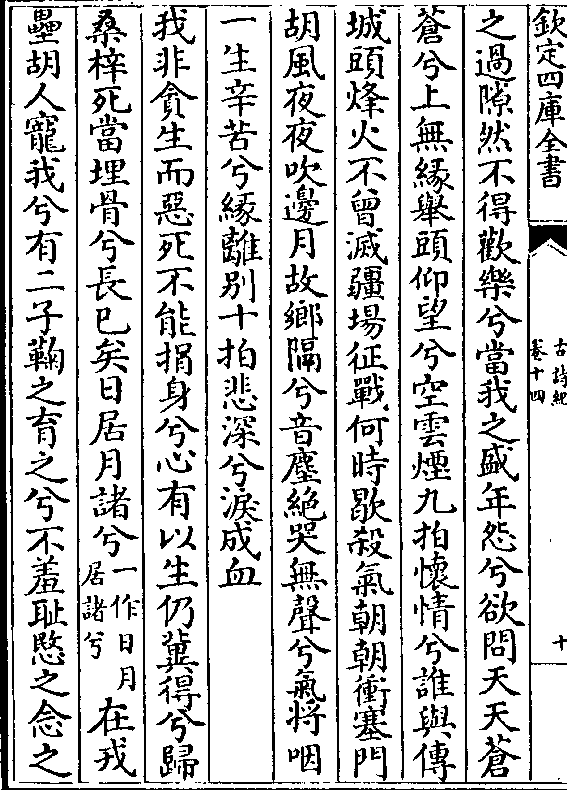 欽定四庫全書
古詩紀
卷十四
十
之過隙然不得歡樂兮當我之盛年怨兮欲問天天蒼
蒼兮上無緣舉頭仰望兮空雲煙九拍懷情兮誰與傳
城頭烽火不曾滅疆場征戰何時歇殺氣朝朝衝塞門
胡風夜夜吹邊月故鄉隔兮音塵絕哭無聲兮氣將咽
一生辛苦兮緣離别十拍悲深兮淚成血
我非貪生而惡死不能捐身兮心有以生仍冀得兮歸
桑梓死當埋骨兮長已矣日居月諸兮一作日月居諸兮在戎
壘胡人寵我兮有二子鞠之育之兮不羞恥愍之念之